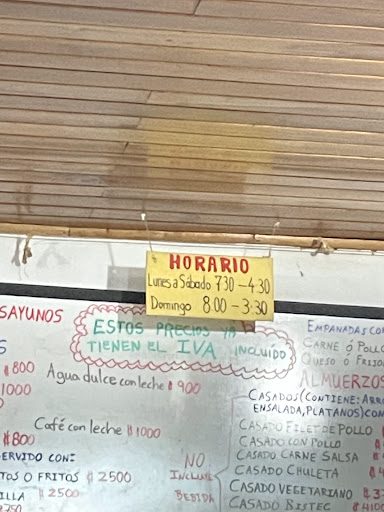 HORARIO
Lunes a Sábado 730 - 4:30
Domingo 8:00 - 3:30
SAYUNOS
ESTOS PRECIOS YA
TIENEN EL IVA INCLUÍDO
₡800
1000
Agua dulce con leche ₡900
Café con leche ₡1000
₡800
ERVIDO CON:
TOS O FRITOS ₡2500
ILLA ₡2500
NO
INCLUYE
BEBIDA
EMPANADAS CON
CARNE ó POLLO
QUESO ó FRIJOL
ALMUERZOS
CASADOS (CONTIENE: ARRO
ENSALADA, PLATANOS) CON
CASADO FILET DE POLLO
CASADO CON POLLO
CASADO CARNE SALSA
CASADO CHULETA
CASADO VEGETARIANO ₡3
CASADO BISTEC ₡410